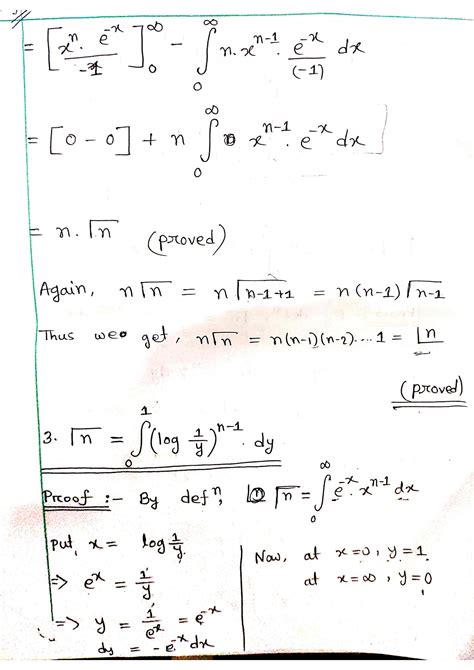 = [x^n · e^-x / -1]_0^∞ - ∫_0^∞ n·x^n-1 · e^-x / (-1) dx
= [0-0] + n ∫_0^∞ x^n-1 · e^-x dx
= n·Γn (proved)
Again, nΓn = nΓn-1+1 = n(n-1)Γn-1
Thus we get, nΓn = n(n-1)(n-2)....1 = ⌊n
(proved)
3. Γn = ∫_0^1 (log 1/y)^n-1 · dy
Proof :- By def^n, Γn = ∫_0^∞ e^-x · x^n-1 dx
Put, x = log 1/y
⇒ e^x = 1/y
⇒ y = 1/e^x = e^-x
dy = -e^-x dx
Now, at x=0, y=1
at x=∞, y=0